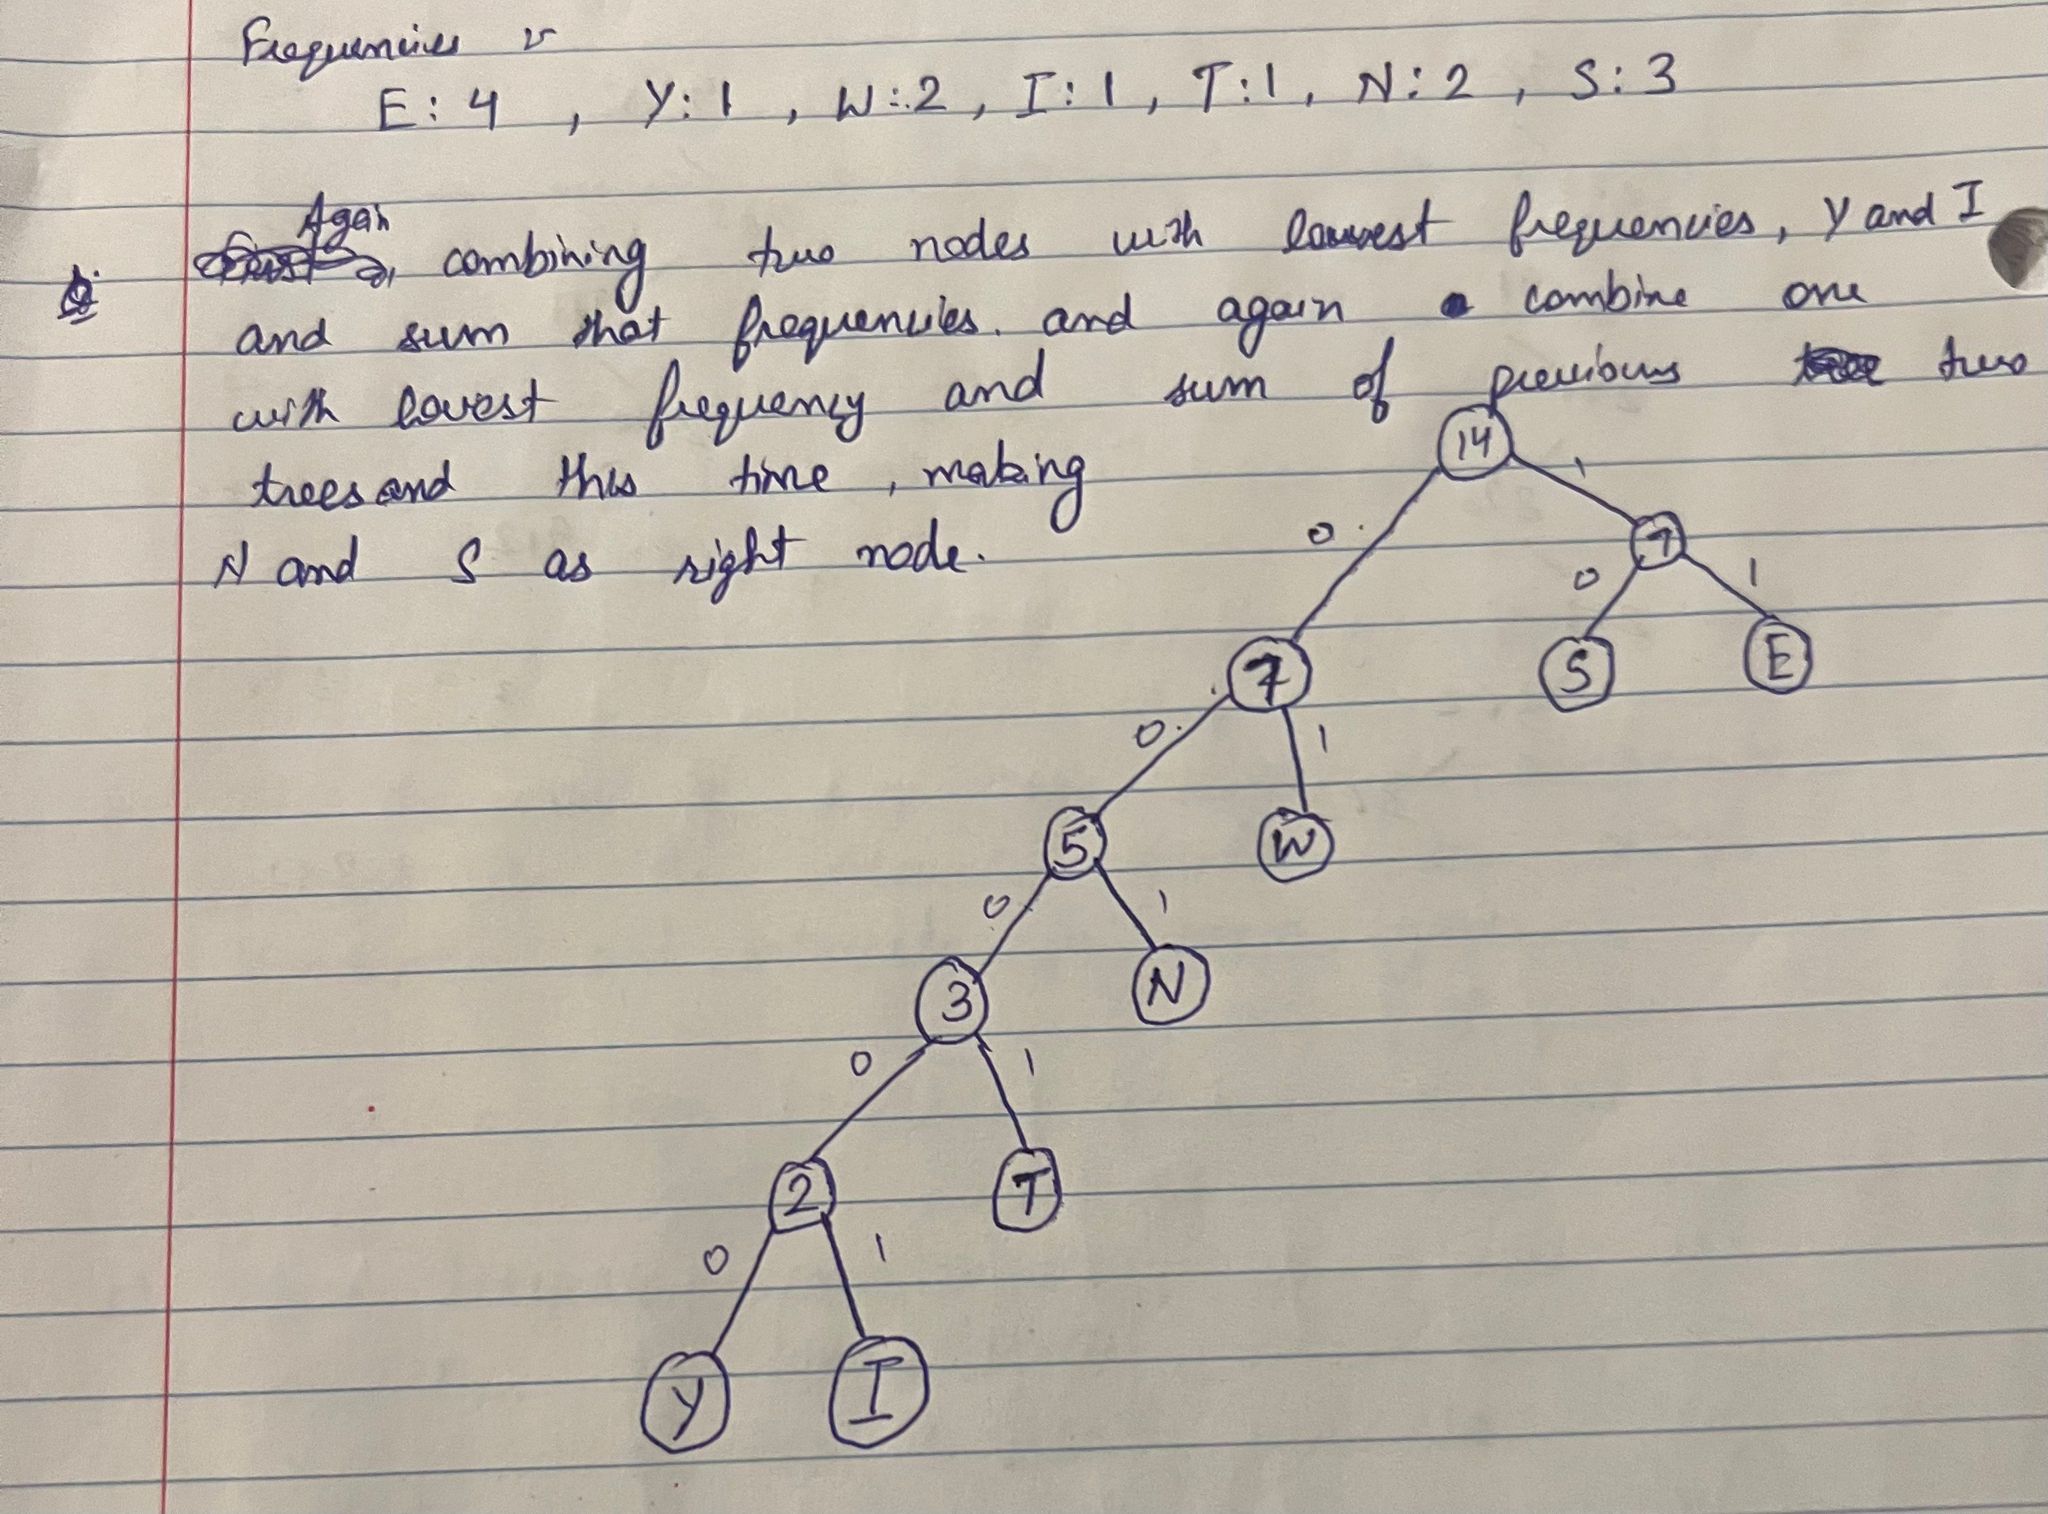 Frequencies :-
E: 4 , Y: 1 , W: 2 , I: 1 , T: 1 , N: 2 , S: 3
Again
combining two nodes with lowest frequencies, Y and I
and sum that frequencies. and again combine one
with lowest frequency and sum of previous two
trees and this time, making
N and S as right node.
14
0 1
7
0 1
7
S E
0 1
5 W
0 1
3 N
0 1
2 T
0 1
Y I